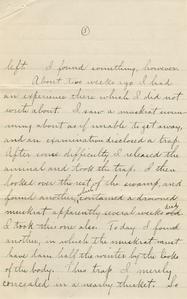 (3)
left. I found something, however.
About two weeks ago I had
an experience there which I did not
write about. I saw a muskrat swim-
ming about as if unable to get away,
and an examination disclosed a trap.
After some difficulty I released the
animal and took the trap. I then
looked over the rest of the swamp, and
found another, contained a drowned
muskrat apparently several weeks
I took this one also. Today I found
another, in which the muskrat must
have lain half the winter by the looks
of the body. This trap I merely
concealed in a nearby thicket. So